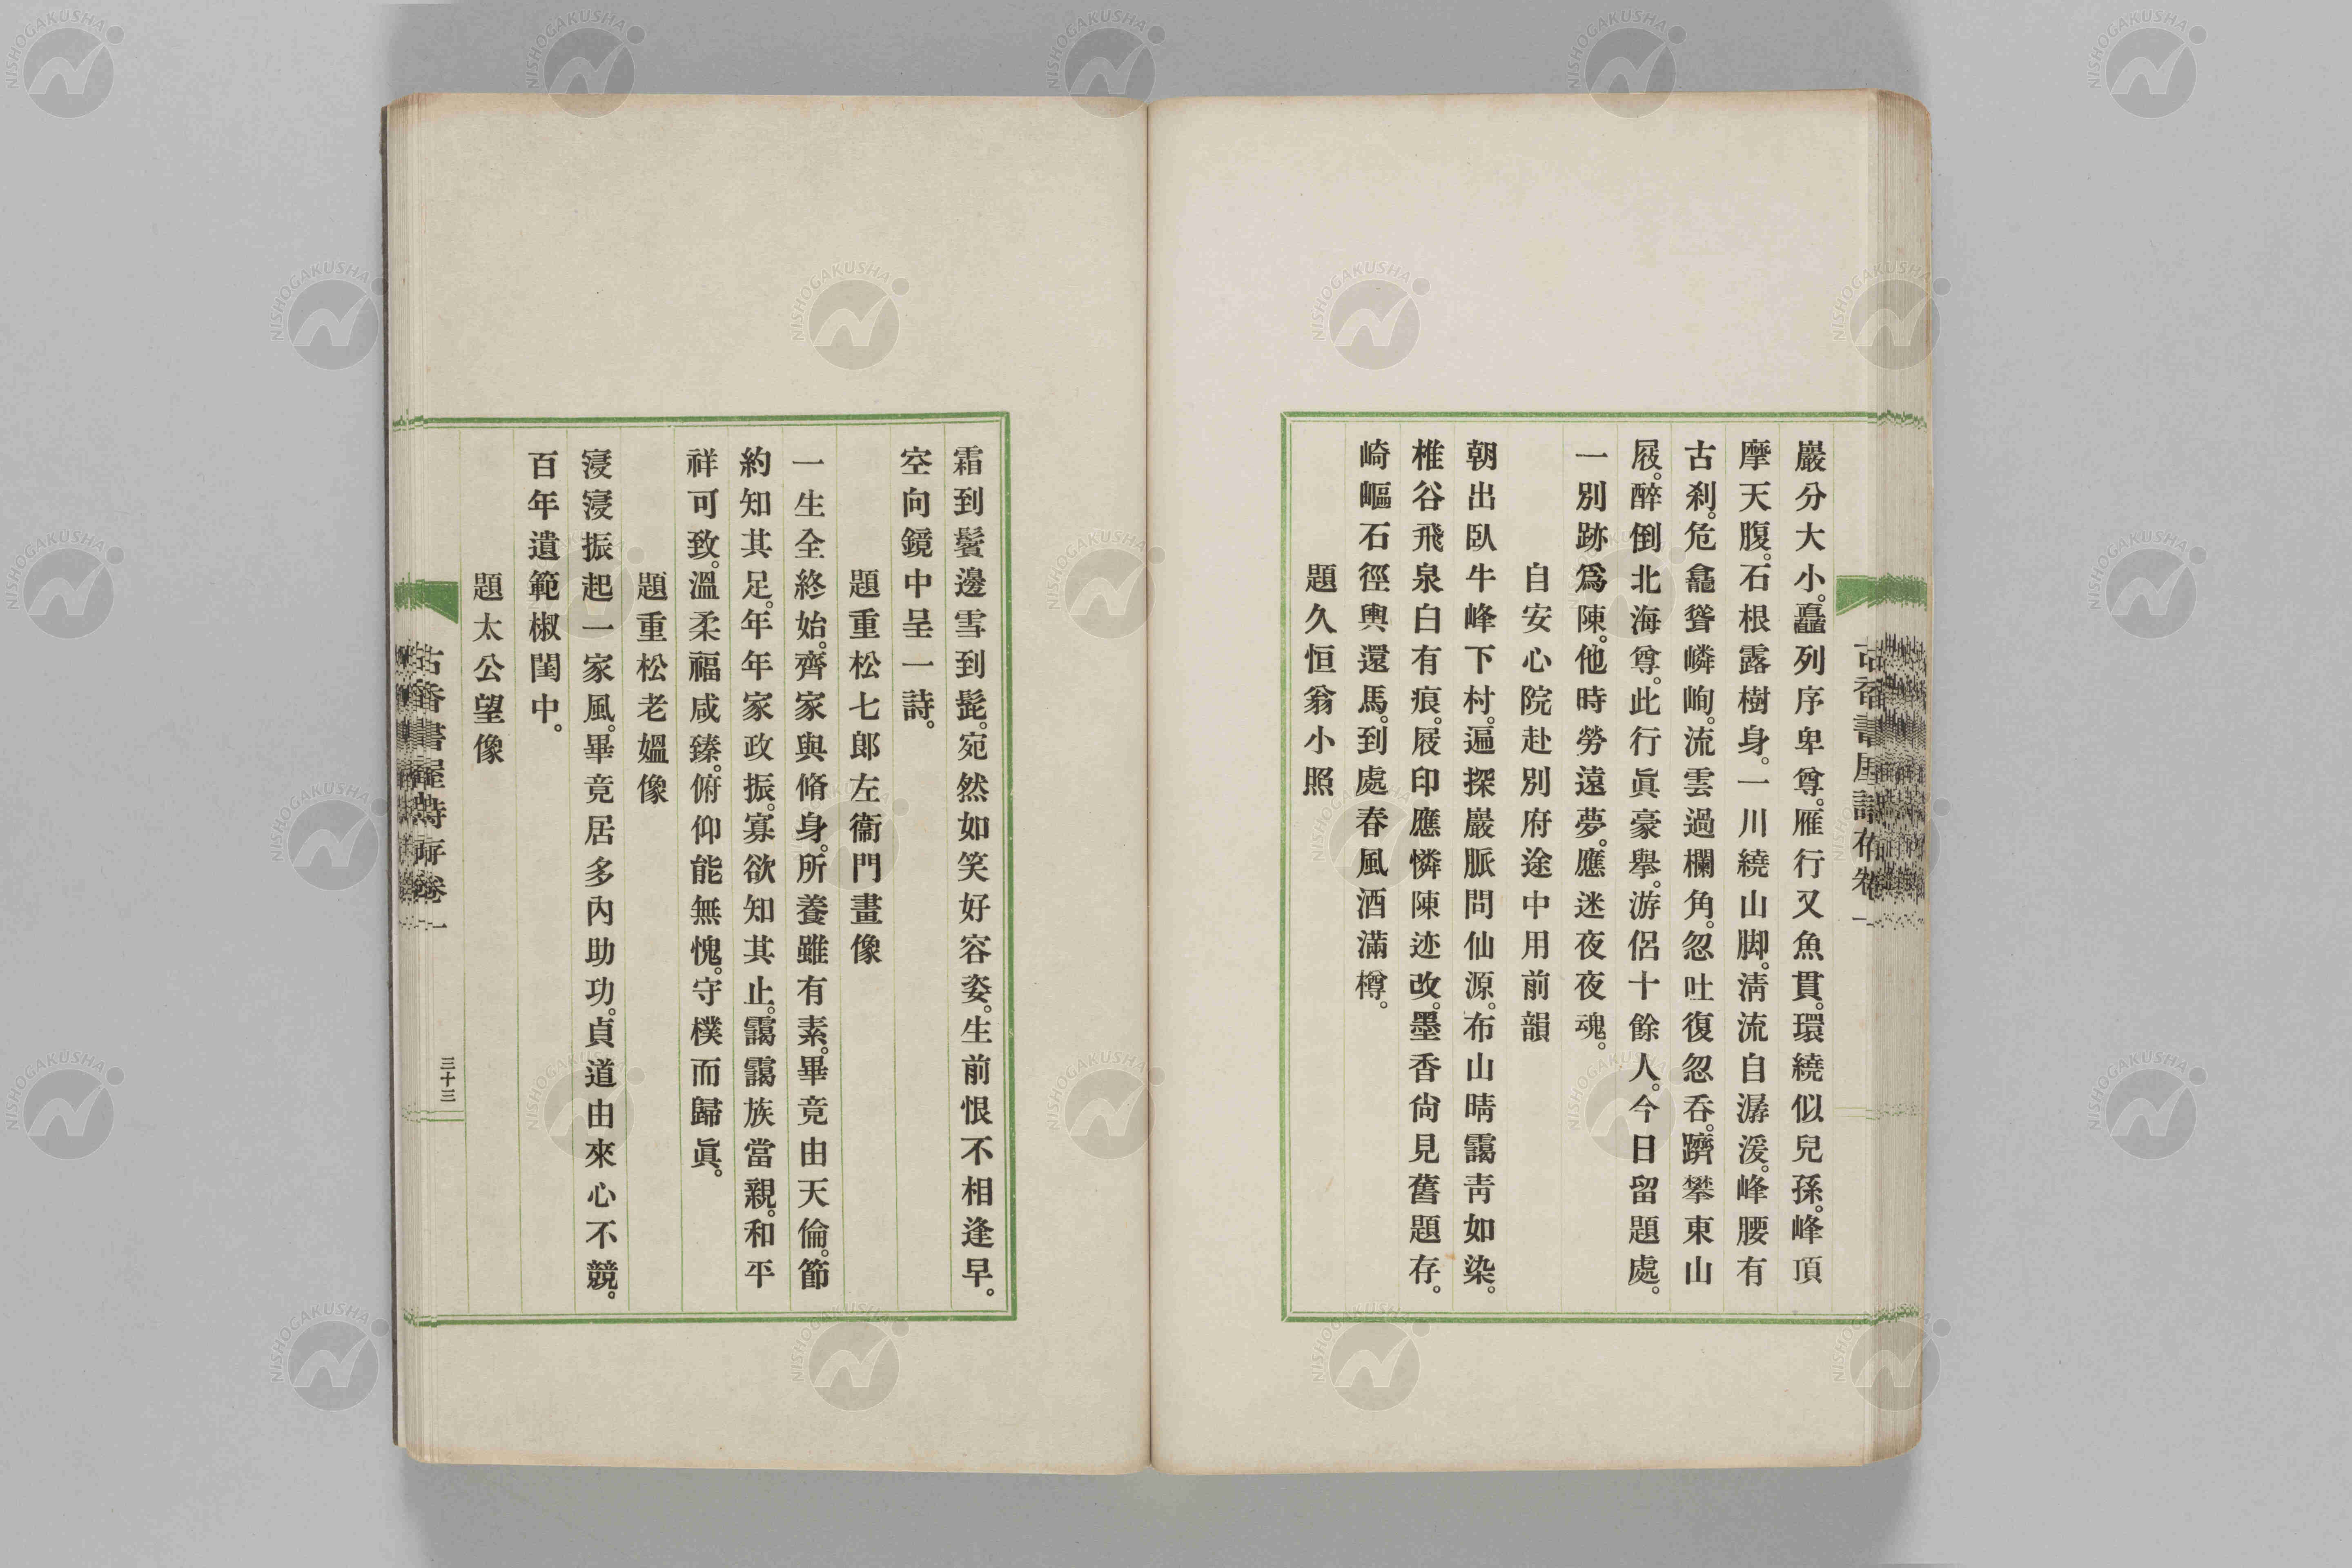 巖分大小。矗列序卑尊。雁行又魚貫。環繞似兒孫。峰頂
摩天腹。石根露樹身。一川繞山脚。淸流自潺湲。峰腰有
古刹。危龕聳嶙峋。流雲過欄角。忽吐復忽吞。躋攀東山
屐。醉倒北海尊。此行眞豪擧。游侶十餘人。今日留題處。
一別跡爲陳。他時勞遠夢。應迷夜夜魂。
自安心院赴別府途中用前韻
朝出臥牛峰下村。遍探巖脈問仙源。布山晴靄靑如染。
椎谷飛泉白有痕。屐印應憐陳迹改。墨香尙見舊題存。
崎嶇石徑輿還馬。到處春風酒滿樽。
題久恒翁小照
霜到鬢邊雪到髭。宛然如笑好容姿。生前恨不相逢早。
空向鏡中呈一詩。
題重松七郎左衞門畫像
一生全終始。齊家與脩身。所養雖有素。畢竟由天倫。節
約知其足。年年家政振。寡欲知其止。靄靄族當親。和平
祥可致。溫柔福咸臻。俯仰能無愧。守樸而歸眞。
題重松老媼像
寖寖振起一家風。畢竟居多內助功。貞道由來心不競。
百年遺範椒閨中。
題太公望像
古香書屋詩存卷一
三十三
NISHOGAKUSHA